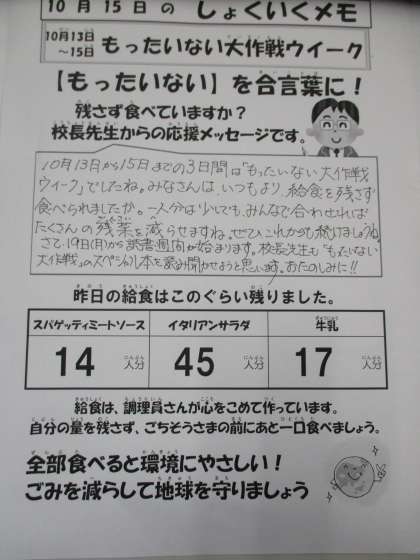 10月15日の しょくいくメモ
10月13日
～15日 もったいない大作戦ウイーク
【もったいない】を合言葉に！
残さず食べていますか？
校長先生からの応援メッセージです。
10月13日から15日までの3日間は「もったいない大作戦
ウィーク」でしたね。みなさんは、いつもより、給食を残さず
食べられましたか。一人分は少しでも、みんなで合わせれば
たくさんの残菜を減らせますね。ぜひこれからも続けましょうね。
さて、19日(月)から読書週間が始まります。校長先生も"もったいない
大作戦"のスペシャル本を読み聞かせようと思います。おたのしみに!!
昨日の給食はこのぐらい残りました。
スパゲッティミートソース イタリアンサラダ 牛乳
14人分 45人分 17人分
給食は、調理員さんが心をこめて作っています。
自分の量を残さず、ごちそうさまの前にあと一口食べましょう。
全部食べると環境にやさしい！
ごみを減らして地球を守りましょう